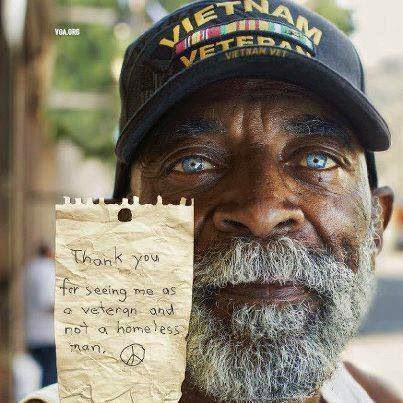 VOA.ORG
VIETNAM
VETERAN
VIETNAM VET
Thank you
for seeing me as
a veteran and
not a homeless
man.